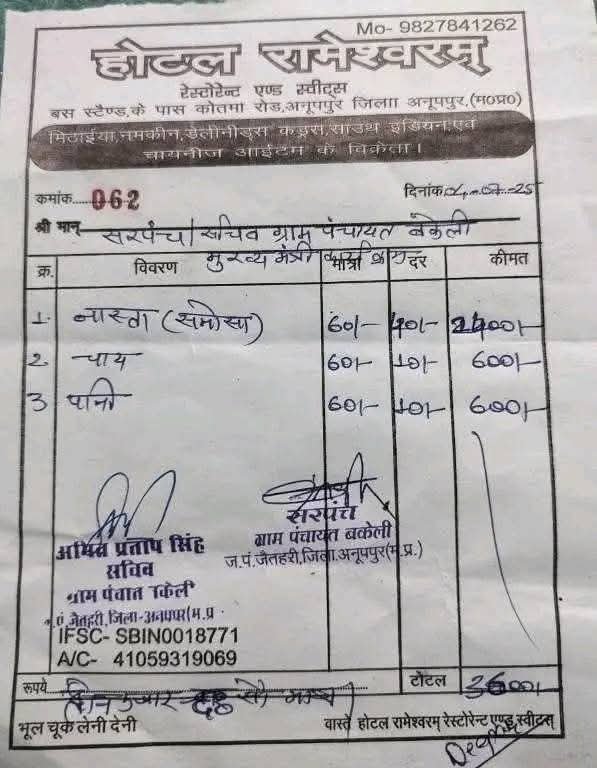 Mo- 9827841262
होटल रामेश्वरम्
रेस्टोरेन्ट एण्ड स्वीट्स
बस स्टैण्ड,के पास कोतमा रोड,अनूपपुर जिलाा अनूपपुर,(म०प्र०)
मिठाईया,नमकीन,डेलीनीड्स कड्रस,साउथ इंडियन,एवं
चायनीज आईटम के विक्रेता।
कमांक.....062
दिनांक.04-07-25
श्री मान् सरपंच/सचिव ग्राम पंचायत बकेली
मुख्य मंत्री
क्र. विवरण मात्रा दर कीमत
1. नास्ता (समोसा) 60/- 40/- 2400/-
2 चाय 60/- 10/- 600/-
3 पानी 60/- 10/- 600/-
सरपंच
ग्राम पंचायत बकेली
ज.पं.जैतहरी,जिला.अनूपपुर(म.प्र.)
अमित प्रताप सिंह
सचिव
ग्राम पंचात बकेली
पं.जैतहरी,जिला-अनूपपुर(म.प्र.
IFSC- SBIN0018771
A/C- 41059319069
रूपये तीन हजार छः सौ मात्र टोटल 3600/-
भूल चूके लेनी देनी वास्ते होटल रामेश्वरम् रेस्टोरेन्ट एण्ड स्वीट्स